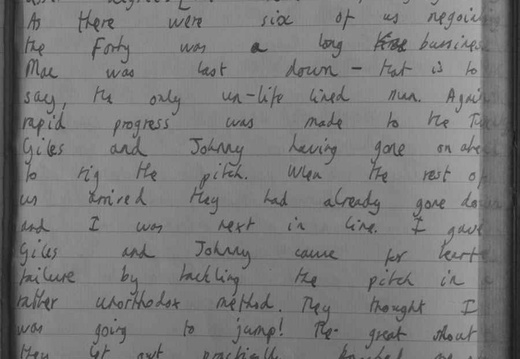 As there were six of us negoin
the Forty was a long bussiness
Mac was last down - that is to
say, the only un-life lined man. Again
rapid progress was made to the
Giles and Johnny having gone on ahead
to rig the pitch. When the rest of
us arrived they had already gone down
and I was next in line. I gave
Giles and Johnny cause for heart
failure by tackling the pitch in a
rather unorthodox method. They thought I
was going to jump! The great shout
they let out practically